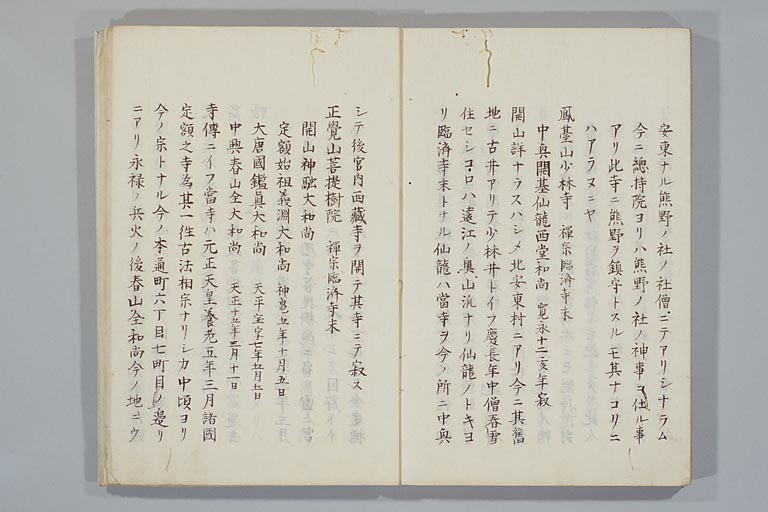 安東ナル熊野ノ社ノ社僧ニテアリシナラム
今ニ總持院ヨリハ熊野ノ社ノ神事ヲ仕ル事
アリ此寺ニ熊野ヲ鎮守トスルモ其ナコリニ
ハアラヌニヤ
鳳䑓山少林寺 禪宗臨濟寺末
中興開基仙龍西堂和尚 寛永十二亥年寂
開山詳ナラスハシメ北安東村ニアリ今ニ其舊
地ニ古井アリテ少林井トイフ慶長年中僧春雪
住セシコロハ遠江ノ奥山派ナリ仙龍ノトキヨ
リ臨濟寺末トナル仙龍ハ當寺ヲ今ノ所ニ中興
シテ後宮内西藏寺ヲ開テ其寺ニテ寂ス
正覺山菩提樹院 禪宗臨濟寺末
開山神融大和尚
定額始祖義淵大和尚 神亀五年十月五日
大唐國鑑眞大和尚 天平宝字七年五月五日
中興春山全大和尚 天正十五年三月十一日
寺傳ニイフ當寺ハ元正天皇養老五年三月諸國
定額之寺為其一往古法相宗ナリシカ中頃ヨリ
今ノ宗トナル今ノ本通町六丁目七町目ノ邉リ
ニアリ永禄ノ兵火ノ後春山全和尚今ノ地ニウ